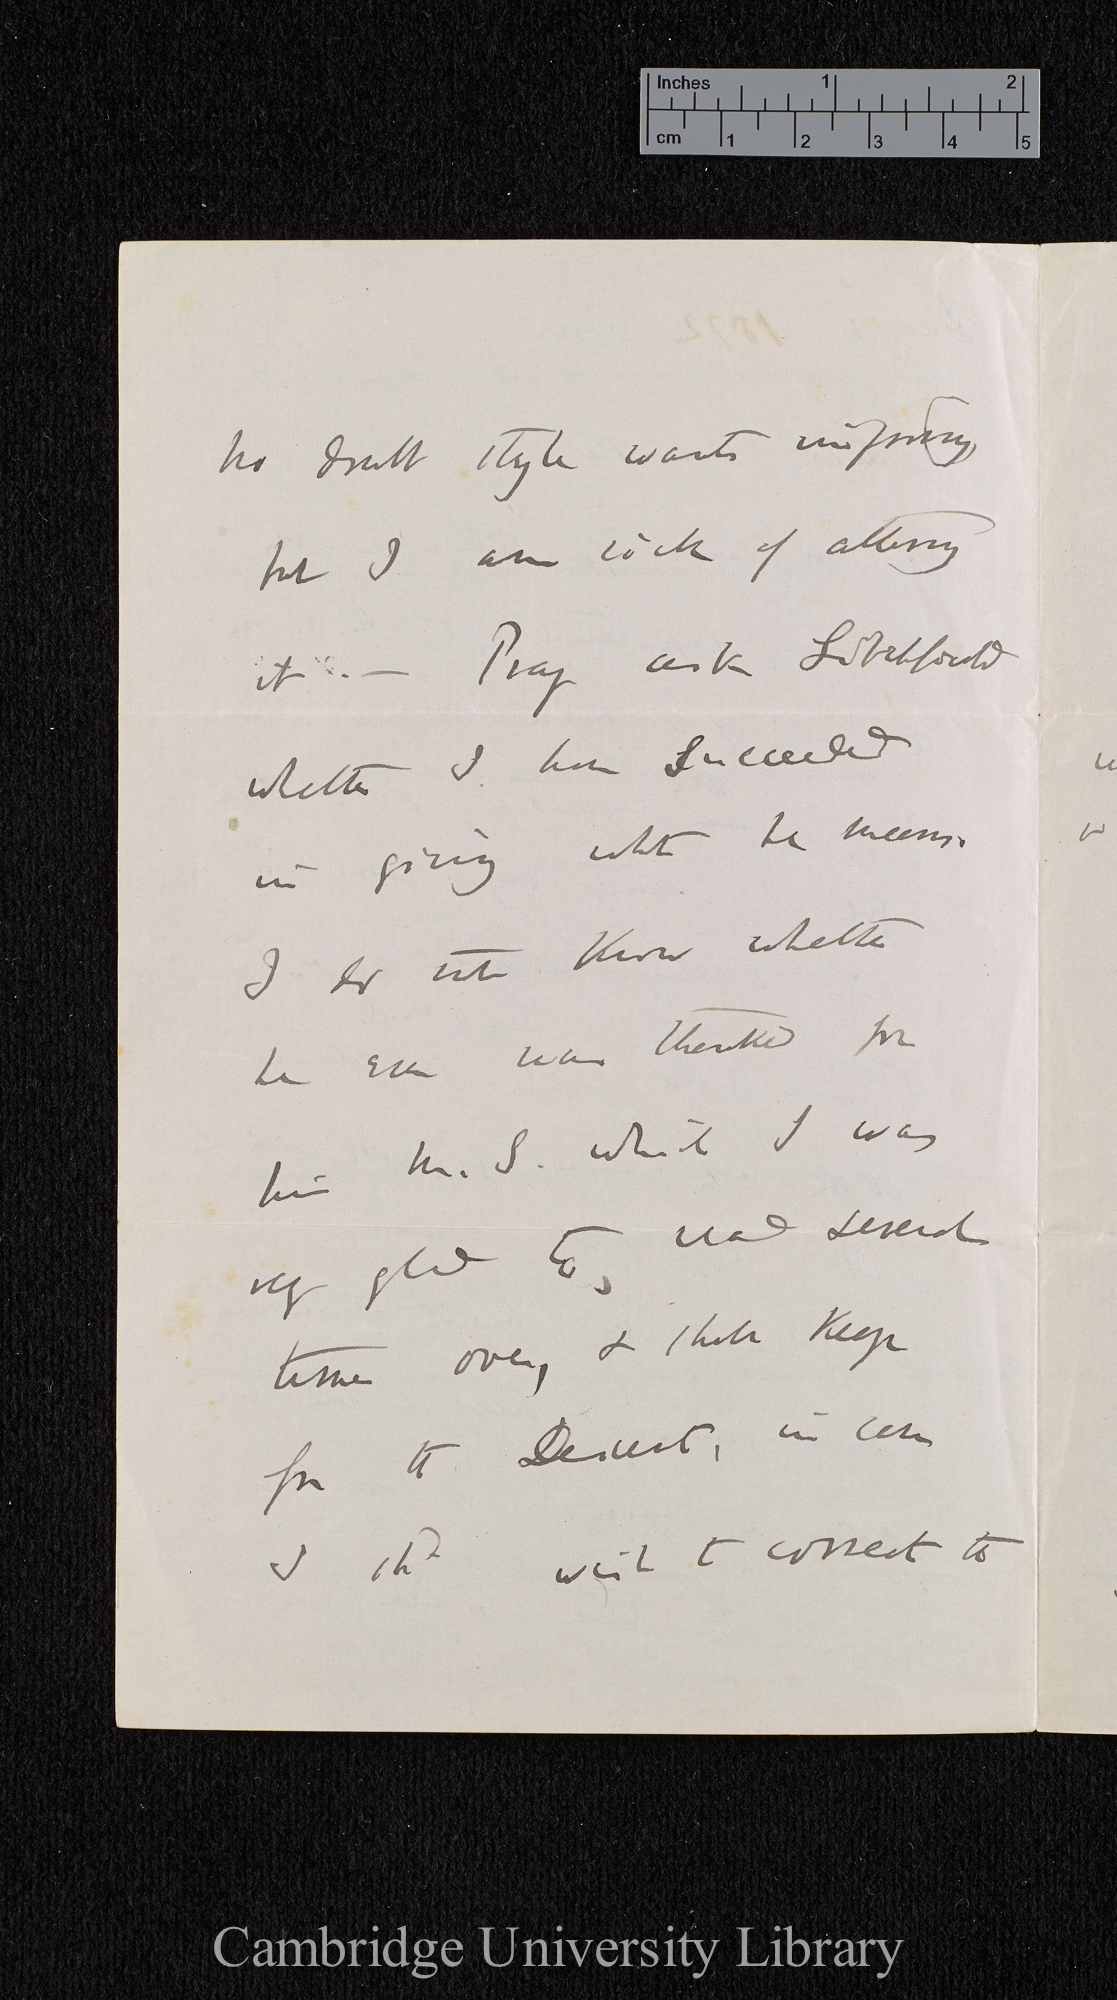 Inches 1 2
cm 1 2 3 4 5
1872
no doubt style wants improving,
but I am sick of altering
it.— Pray ask Litchfield
whether I have succeeded
in giving what he means.
I do not know whether
he ever was thanked for
his M.S. which I was
very glad to, read several
times over, & shall keep
for the Descent, in case
I shd wish to correct the
Cambridge University Library